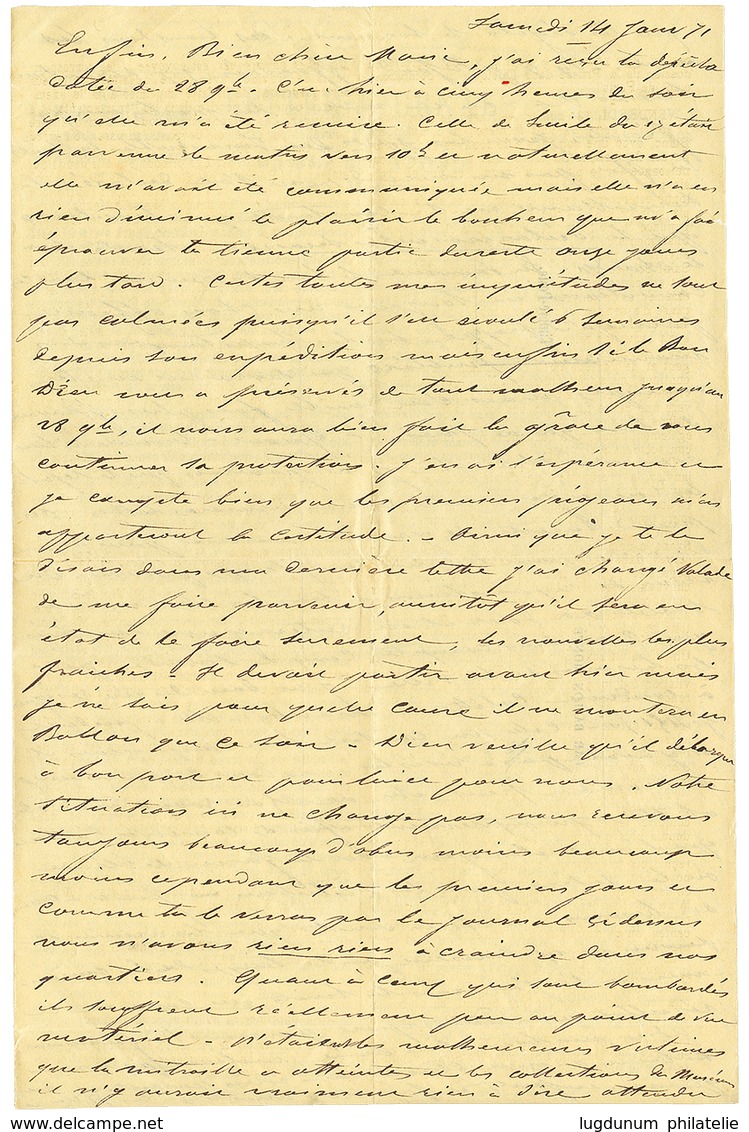 Samedi 14 Janv 71
Enfin, Bien chère Marie, j'ai reçu ta dépêche
datée du 28 9bre. C'est hier à cinq heures du soir
qu'elle m'a été remise. Celle de du était
parvenue le matin vers 10h et naturellement
elle m'avait été communiquée mais elle n'a en
rien diminué le plaisir le bonheur que m'a fait
éprouver la tienne partie onze jours
plus tard. Certes toutes mes inquiétudes ne sont
pas calmées puisqu'il s'est écoulé 6 semaines
depuis son expédition mais enfin si le Bon
Dieu vous a préservés de tout malheur jusqu'au
28 9bre, il nous aura bien fait la grâce de vous
continuer sa protection. J'en ai l'espérance et
je compte bien que les premiers pigeons m'en
apporteront la certitude. - Ainsi que je te le
disais dans ma dernière lettre j'ai chargé Valade
de me faire parvenir, aussitôt qu'il sera en
état de le faire surement, les nouvelles les plus
fraîches - Il devait partir avant hier mais
je ne sais pour quelle cause il ne montera en
Ballon que ce soir - Dieu veuille qu'il débarque
à bon port et pour lui et pour nous. Notre
situation ici ne change pas, nous recevons
toujours beaucoup d'obus moins beaucoup
moins cependant que les premiers jours et
comme tu le verras par le Journal ci dessus
nous n'avons rien rien à craindre dans nos
quartiers. Quant à ceux qui sont bombardés
ils souffrent réellement peu au point de vue
matériel - N'étaient les malheureuses victimes
que la mitraille a atteintes et les collections du Muséum
il n'y aurait vraiment rien à dire attendu
lugdunum philatelie